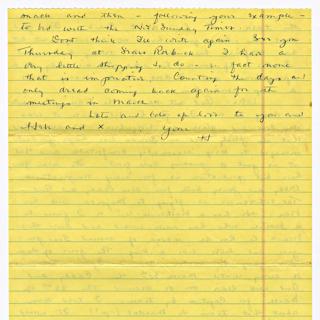 snack and then - following your example -
to bed with the N.Y. Sunday Times
Don't think I'll write again. See you
Thursday at Sears Roebuck. I have a
very little shopping to do - in fact none
that is imperative. Counting the days and
only dread coming back again for the
meetings in March
Lots and lots of love to you and
and x Your
H